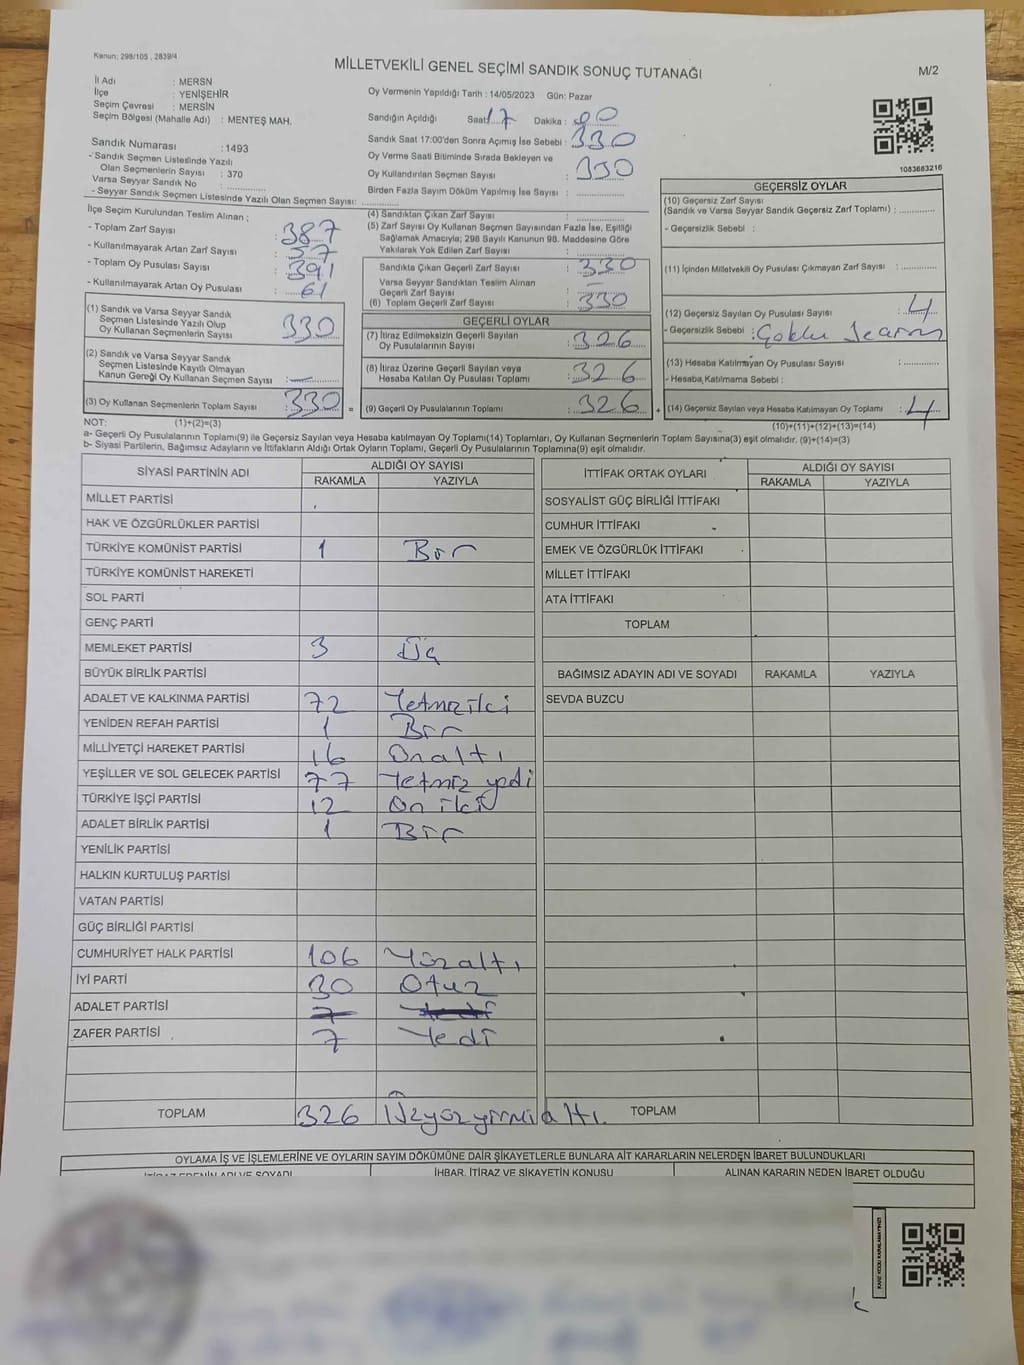 Kanun: 298/105 , 2839/4
MİLLETVEKİLİ GENEL SEÇİMİ SANDIK SONUÇ TUTANAĞI
M/2
İl Adı : MERSN
İlçe : YENİŞEHİR
Seçim Çevresi : MERSİN
Seçim Bölgesi (Mahalle Adı) : MENTEŞ MAH.
Oy Vermenin Yapıldığı Tarih : 14/05/2023 Gün: Pazar
Sandığın Açıldığı Saat: 17 Dakika : 00
Sandık Saat 17:00'den Sonra Açımış İse Sebebi : 330
Oy Verme Saati Bitiminde Sırada Bekleyen ve
Oy Kullandırılan Seçmen Sayısı : 330
Birden Fazla Sayım Döküm Yapılmış İse Sayısı :
1083683216
Sandık Numarası : 1493
- Sandık Seçmen Listesinde Yazılı
Olan Seçmenlerin Sayısı : 370
Varsa Seyyar Sandık No :
- Seyyar Sandık Seçmen Listesinde Yazılı Olan Seçmen Sayısı:
İlçe Seçim Kurulundan Teslim Alınan ;
- Toplam Zarf Sayısı : 387
- Kullanılmayarak Artan Zarf Sayısı : 57
- Toplam Oy Pusulası Sayısı : 391
- Kullanılmayarak Artan Oy Pusulası : 61
(1) Sandık ve Varsa Seyyar Sandık
Seçmen Listesinde Yazılı Olup
Oy Kullanan Seçmenlerin Sayısı : 330
(2) Sandık ve Varsa Seyyar Sandık
Seçmen Listesinde Kayıtlı Olmayan
Kanun Gereği Oy Kullanan Seçmen Sayısı : —
(3) Oy Kullanan Seçmenlerin Toplam Sayısı : 330 =
(1)+(2)=(3)
(4) Sandıktan Çıkan Zarf Sayısı :
(5) Zarf Sayısı Oy Kullanan Seçmen Sayısından Fazla İse, Eşitliği
Sağlamak Amacıyla; 298 Sayılı Kanunun 98. Maddesine Göre
Yakılarak Yok Edilen Zarf Sayısı :
Sandıkta Çıkan Geçerli Zarf Sayısı : 330
Varsa Seyyar Sandıktan Teslim Alınan
Geçerli Zarf Sayısı : —
(6) Toplam Geçerli Zarf Sayısı : 330
GEÇERLİ OYLAR
(7) İtiraz Edilmeksizin Geçerli Sayılan
Oy Pusulalarının Sayısı : 326
(8) İtiraz Üzerine Geçerli Sayılan veya
Hesaba Katılan Oy Pusulası Toplamı : 326
(9) Geçerli Oy Pusulalarının Toplamı : 326 +
GEÇERSİZ OYLAR
(10) Geçersiz Zarf Sayısı
(Sandık ve Varsa Seyyar Sandık Geçersiz Zarf Toplamı) :
- Geçersizlik Sebebi :
(11) İçinden Milletvekili Oy Pusulası Çıkmayan Zarf Sayısı :
(12) Geçersiz Sayılan Oy Pusulası Sayısı : 4
- Geçersizlik Sebebi :
(13) Hesaba Katılmayan Oy Pusulası Sayısı :
- Hesaba Katılmama Sebebi :
(14) Geçersiz Sayılan veya Hesaba Katılmayan Oy Toplamı : 4
(10)+(11)+(12)+(13)=(14)
NOT:
a- Geçerli Oy Pusulalarının Toplamı(9) ile Geçersiz Sayılan veya Hesaba katılmayan Oy Toplamı(14) Toplamları, Oy Kullanan Seçmenlerin Toplam Sayısına(3) eşit olmalıdır. (9)+(14)=(3)
b- Siyasi Partilerin, Bağımsız Adayların ve İttifakların Aldığı Ortak Oyların Toplamı, Geçerli Oy Pusulalarının Toplamına(9) eşit olmalıdır.
SİYASİ PARTİNİN ADI ALDIĞI OY SAYISI
RAKAMLA YAZIYLA
MİLLET PARTİSİ
HAK VE ÖZGÜRLÜKLER PARTİSİ
TÜRKİYE KOMÜNİST PARTİSİ 1 Bir
TÜRKİYE KOMÜNİST HAREKETİ
SOL PARTİ
GENÇ PARTİ
MEMLEKET PARTİSİ 3 Üç
BÜYÜK BİRLİK PARTİSİ
ADALET VE KALKINMA PARTİSİ 72 Yetmişiki
YENİDEN REFAH PARTİSİ 1 Bir
MİLLİYETÇİ HAREKET PARTİSİ 16 Onaltı
YEŞİLLER VE SOL GELECEK PARTİSİ 77 Yetmiz yedi
TÜRKİYE İŞÇİ PARTİSİ 12 On iki
ADALET BİRLİK PARTİSİ 1 Bir
YENİLİK PARTİSİ
HALKIN KURTULUŞ PARTİSİ
VATAN PARTİSİ
GÜÇ BİRLİĞİ PARTİSİ
CUMHURİYET HALK PARTİSİ 106 Yüzaltı
İYİ PARTİ 30 Otuz
ADALET PARTİSİ 7 Yedi
ZAFER PARTİSİ 7 Yedi
TOPLAM 326 Üçyüzyirmialtı.
İTTİFAK ORTAK OYLARI ALDIĞI OY SAYISI
RAKAMLA YAZIYLA
SOSYALİST GÜÇ BİRLİĞİ İTTİFAKI
CUMHUR İTTİFAKI
EMEK VE ÖZGÜRLÜK İTTİFAKI
MİLLET İTTİFAKI
ATA İTTİFAKI
TOPLAM
BAĞIMSIZ ADAYIN ADI VE SOYADI RAKAMLA YAZIYLA
SEVDA BUZCU
TOPLAM
OYLAMA İŞ VE İŞLEMLERİNE VE OYLARIN SAYIM DÖKÜMÜNE DAİR ŞİKAYETLERLE BUNLARA AİT KARARLARIN NELERDEN İBARET BULUNDUKLARI
İTİRAZ EDENİN ADI VE SOYADI İHBAR, İTİRAZ VE ŞİKAYETİN KONUSU ALINAN KARARIN NEDEN İBARET OLDUĞU